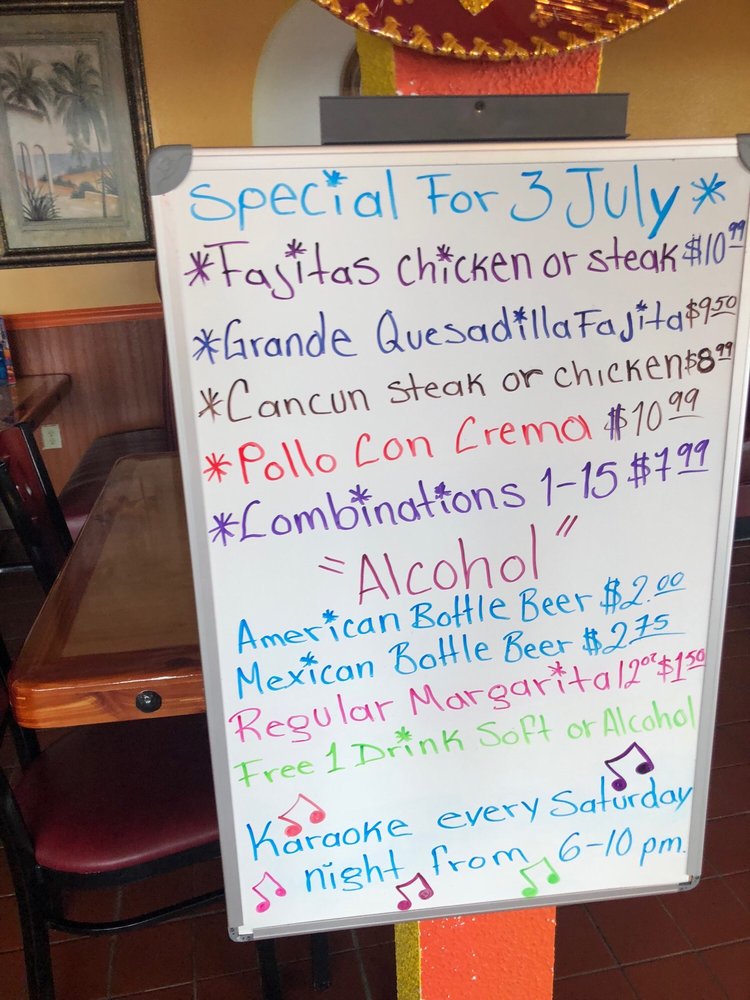 Special For 3 July *
*Fajitas chicken or steak $10.99
*Grande Quesadilla Fajita $9.50
*Cancun steak or chicken $8.99
*Pollo Con Crema $10.99
*Combinations 1-15 $7.99
"Alcohol"
American Bottle Beer $2.00
Mexican Bottle Beer $2.75
Regular Margarita 12oz $1.50
Free 1 Drink Soft or Alcohol
Karaoke every Saturday
night from 6-10 pm.